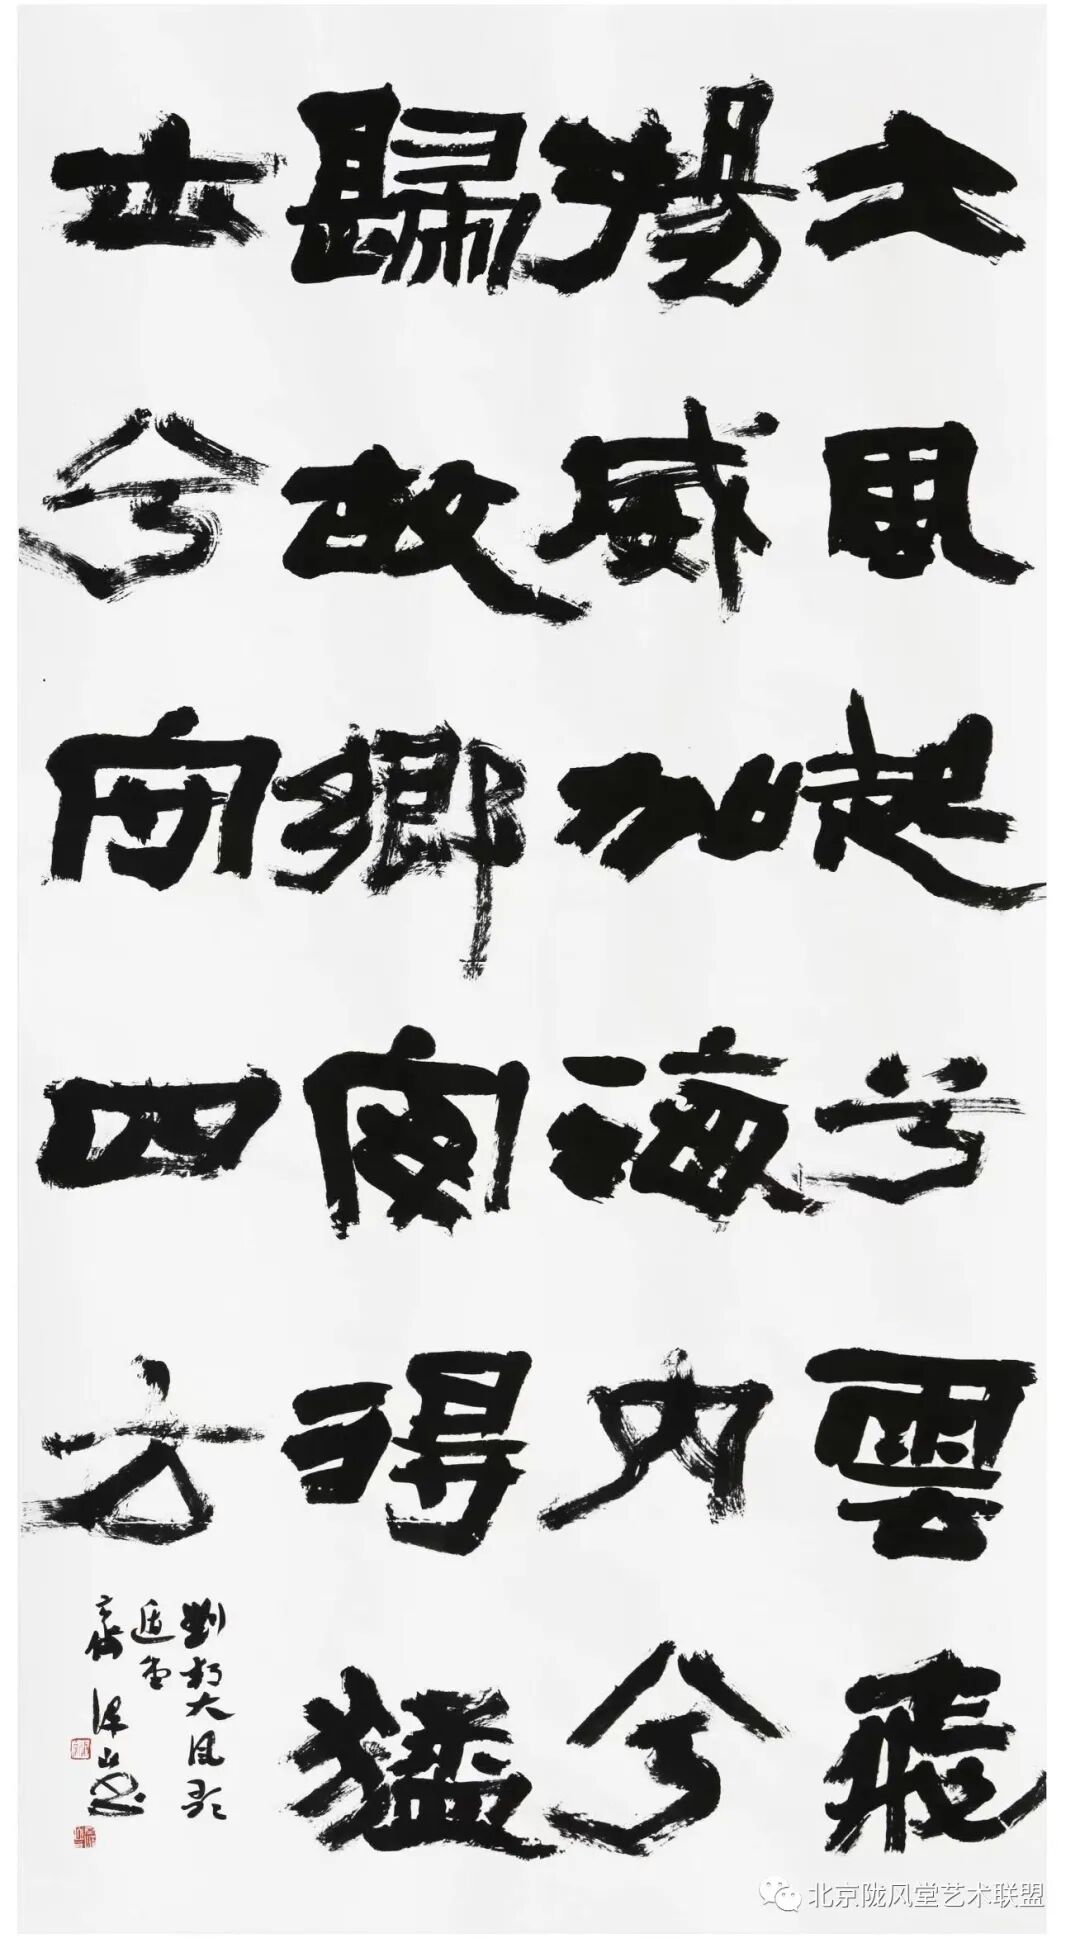 大風起兮雲飛
揚威加海內兮
歸故鄉安得猛
士兮守四方
劉邦大風歌
北京陇风堂艺术联盟